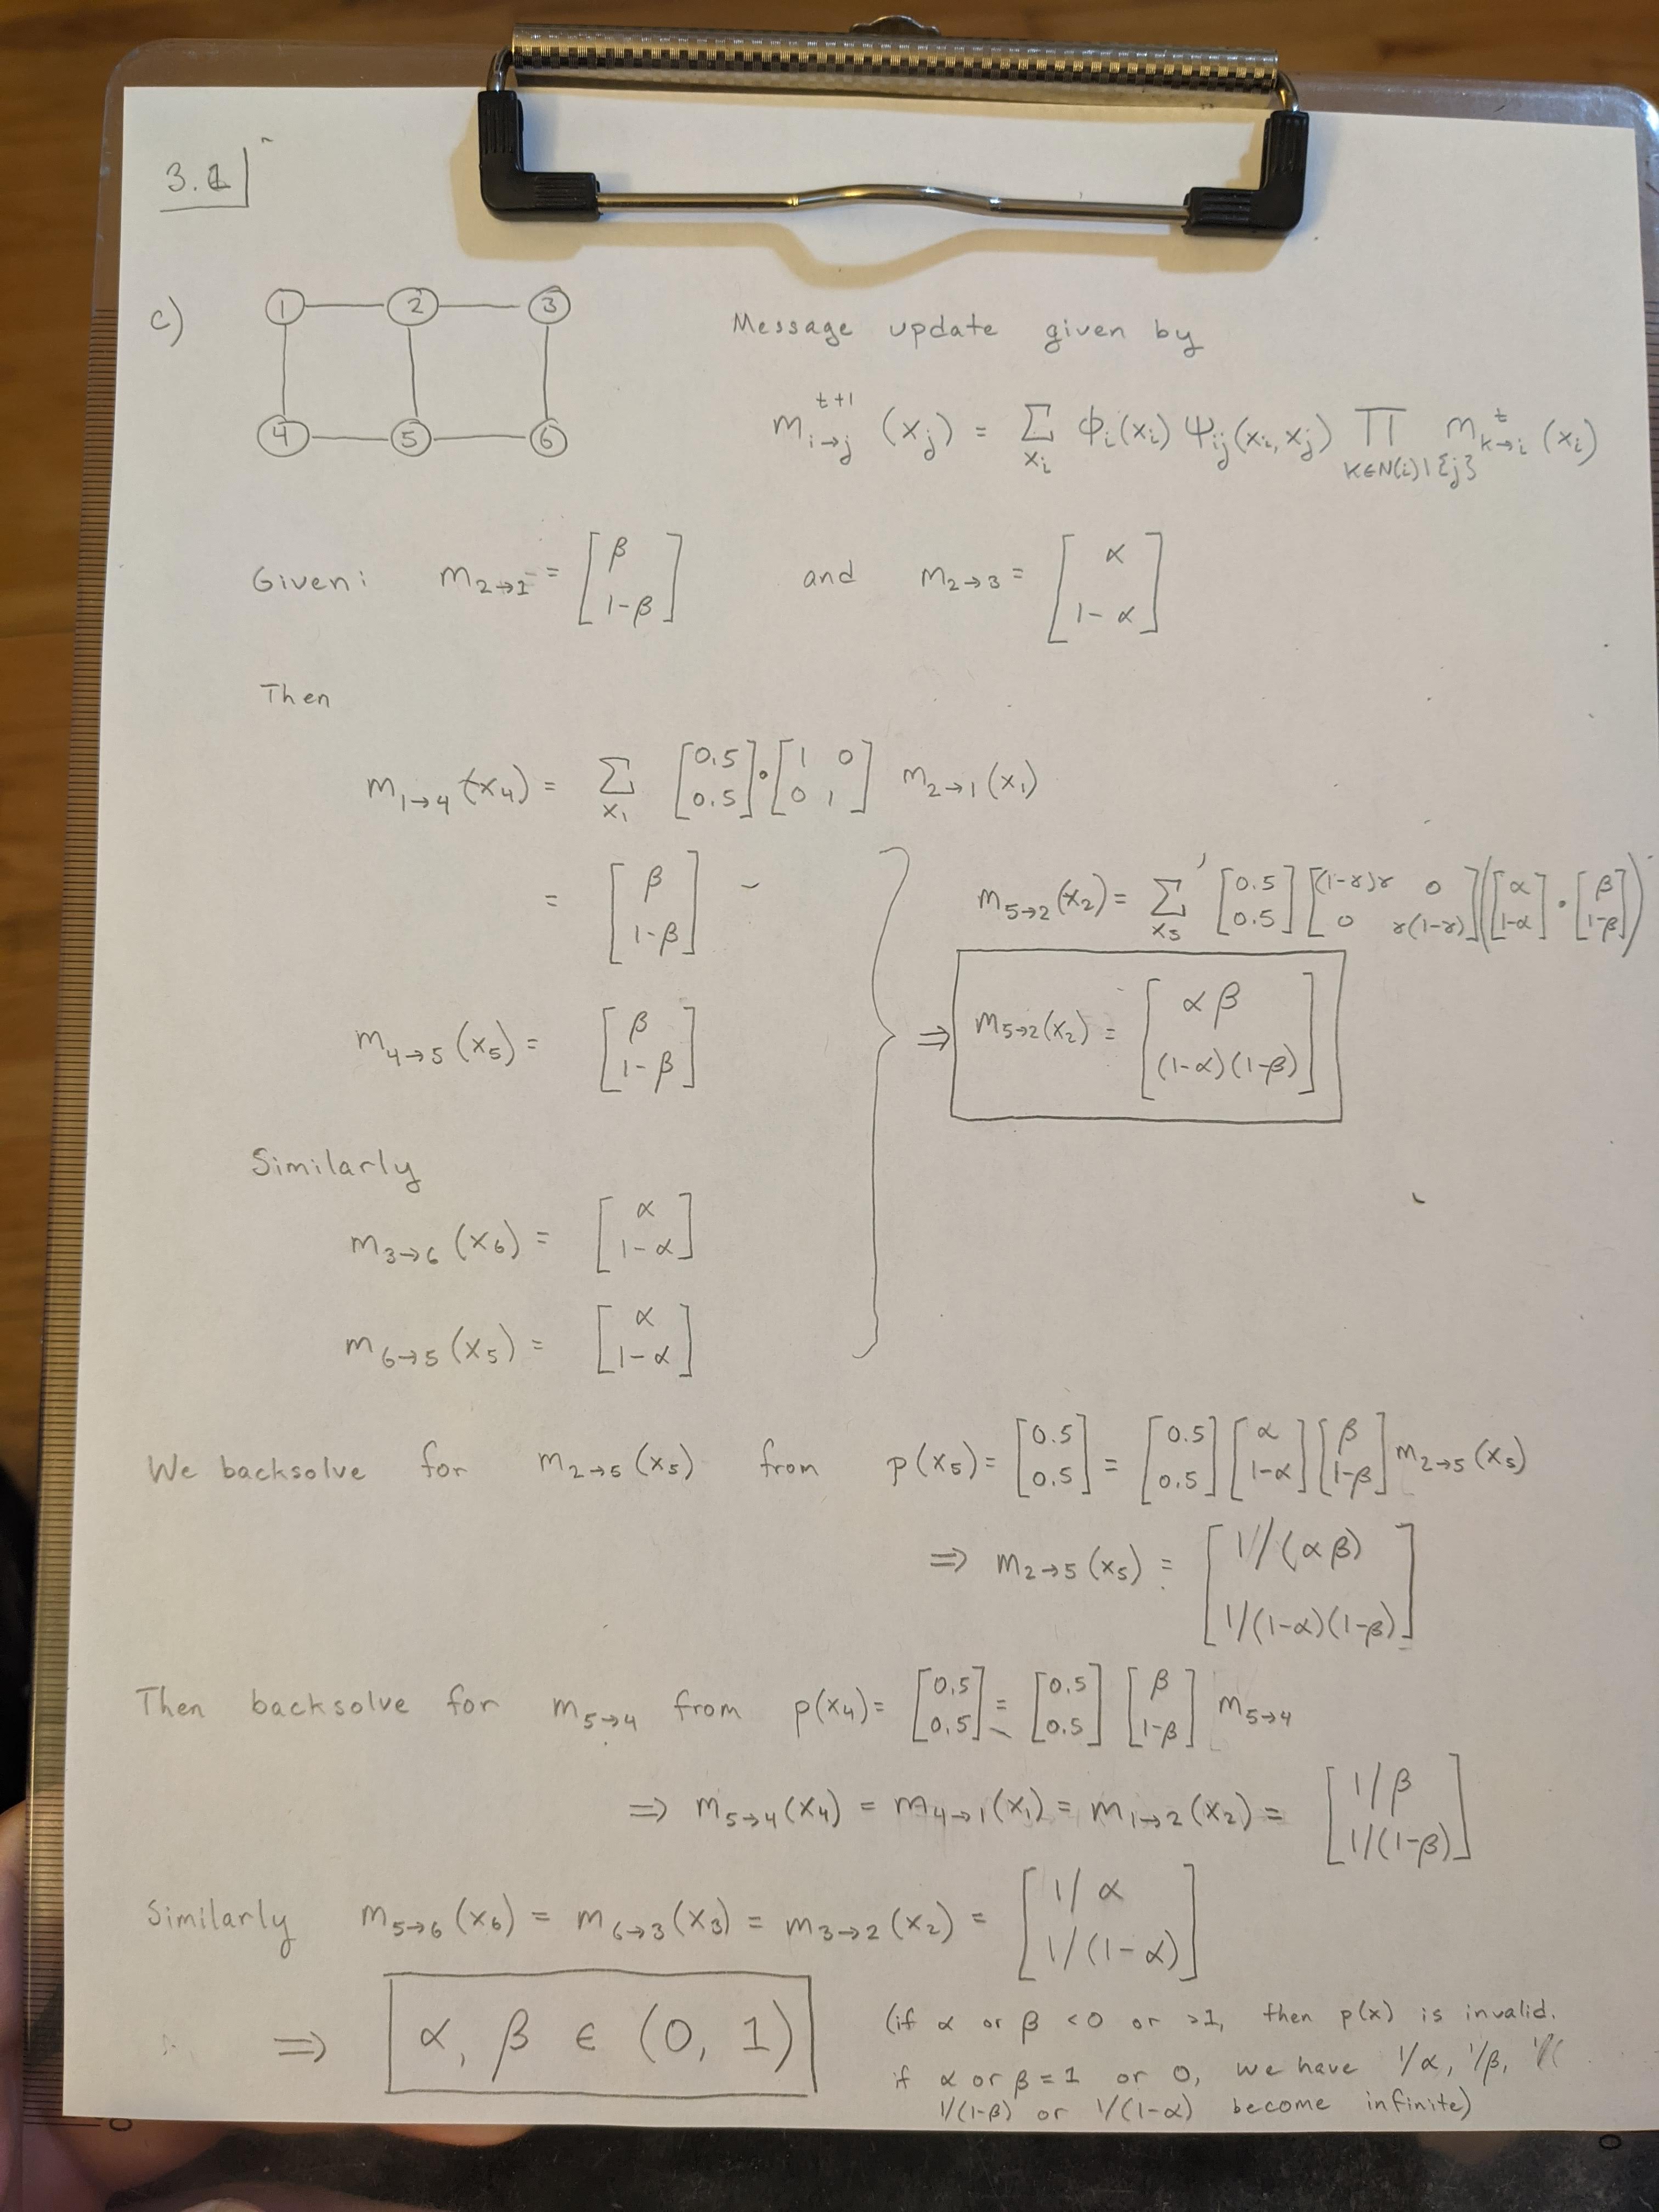 3.1
c)
1 2 3
4 5 6
Message update given by
m_{i→j}^{t+1} (x_j) = Σ_{x_i} ϕ_i(x_i) ψ_{ij}(x_i, x_j) ∏_{k∈N(i)\{j}} m_{k→i}^t (x_i)
Given: m_{2→1} = [β ; 1-β] and m_{2→3} = [α ; 1-α]
Then
m_{1→4}(x_4) = Σ_{x_1} [0.5 ; 0.5] • [1 0 ; 0 1] m_{2→1}(x_1)
= [β ; 1-β]
m_{4→5}(x_5) = [β ; 1-β]
Similarly
m_{3→6}(x_6) = [α ; 1-α]
m_{6→5}(x_5) = [α ; 1-α]
m_{5→2}(x_2) = Σ_{x_5} [0.5 ; 0.5] [(1-γ)γ 0 ; 0 γ(1-γ)] ([α ; 1-α] • [β ; 1-β])
⇒ m_{5→2}(x_2) = [αβ ; (1-α)(1-β)]
We backsolve for m_{2→5}(x_5) from p(x_5) = [0.5 ; 0.5] = [0.5 ; 0.5] [α ; 1-α] [β ; 1-β] m_{2→5}(x_5)
⇒ m_{2→5}(x_5) = [1/(αβ) ; 1/(1-α)(1-β)]
Then backsolve for m_{5→4} from p(x_4) = [0.5 ; 0.5] = [0.5 ; 0.5] [β ; 1-β] m_{5→4}
⇒ m_{5→4}(x_4) = m_{4→1}(x_1) = m_{1→2}(x_2) = [1/β ; 1/(1-β)]
Similarly m_{5→6}(x_6) = m_{6→3}(x_3) = m_{3→2}(x_2) = [1/α ; 1/(1-α)]
⇒ α, β ∈ (0, 1)
(if α or β <0 or >1, then p(x) is invalid.
if α or β = 1 or 0, we have 1/α, 1/β,
1/(1-β) or 1/(1-α) become infinite)